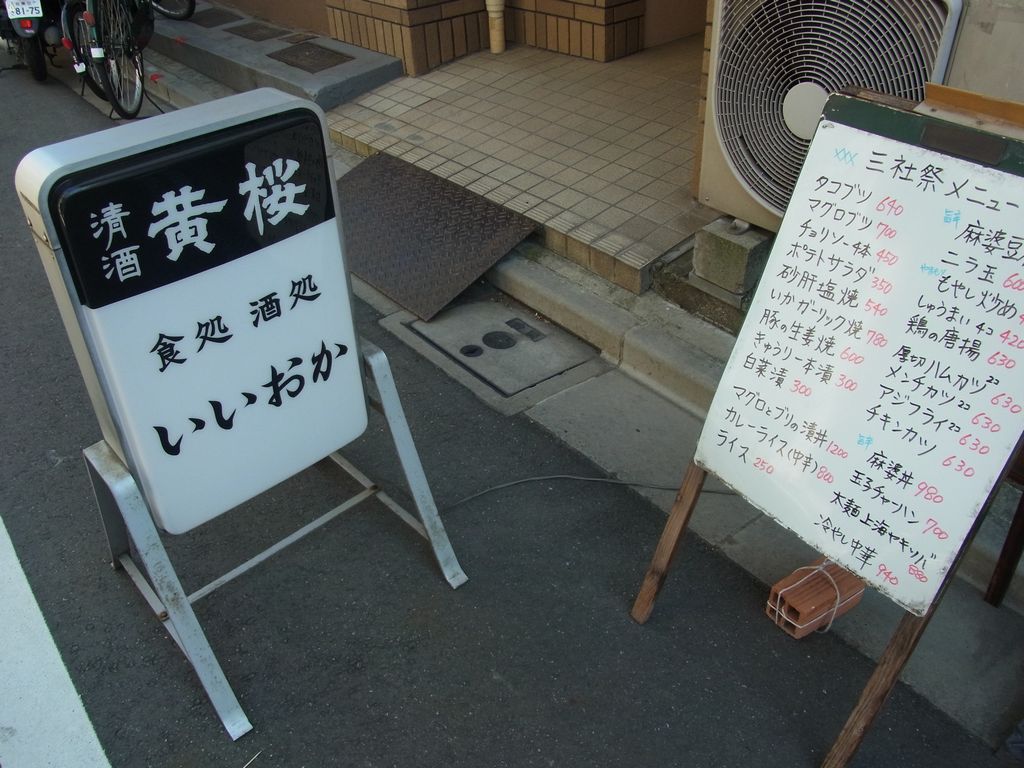 81-75
清酒 黄桜
食処 酒処
いいおか
三社祭メニュー
タコブツ 640
マグロブツ 700
チョリソー4本 450
ポテトサラダ 350
砂肝塩焼 540
いかガーリック焼 780
豚の生姜焼 600
きゅうり一本漬 300
白菜漬 300
マグロとブリの漬丼 1200
カレーライス(中辛) 800
ライス 250
旨辛 麻婆豆
ニラ玉
もやし炒め
しゅうまい4コ 420
鶏の唐揚 630
厚切ハムカツ 630
メンチカツ 630
アジフライ 630
チキンカツ 630
旨辛 麻婆丼 980
玉子チャーハン 700
太麺上海ヤキソバ 880
冷やし中華 940